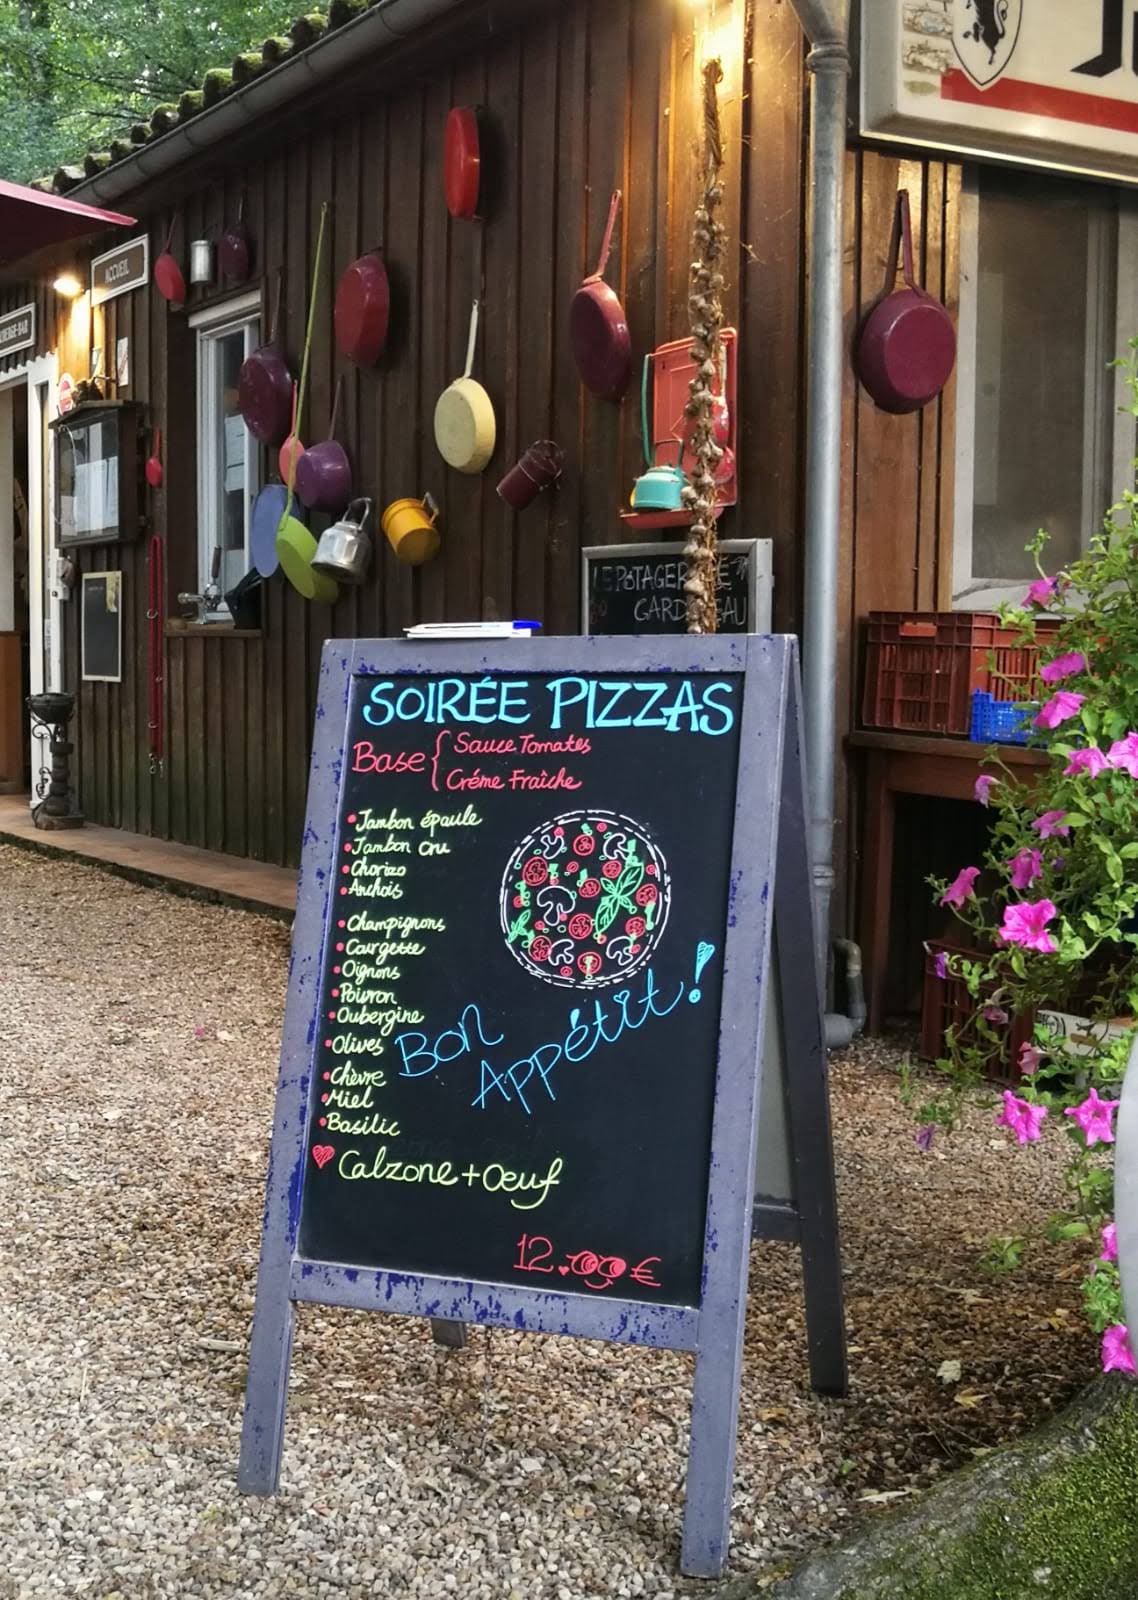 ACCUEIL
SOIRÉE PIZZAS
Base { Sauce Tomates
Créme Fraîche
• Jambon épaule
• Jambon cru
• Chorizo
• Anchois
• Champignons
• Courgette
• Oignons
• Poivron
• Oubergine
• Olives
• Chèvre
• Miel
• Basilic
Bon
Appétit !
♥ Calzone + Oeuf
12.00 €